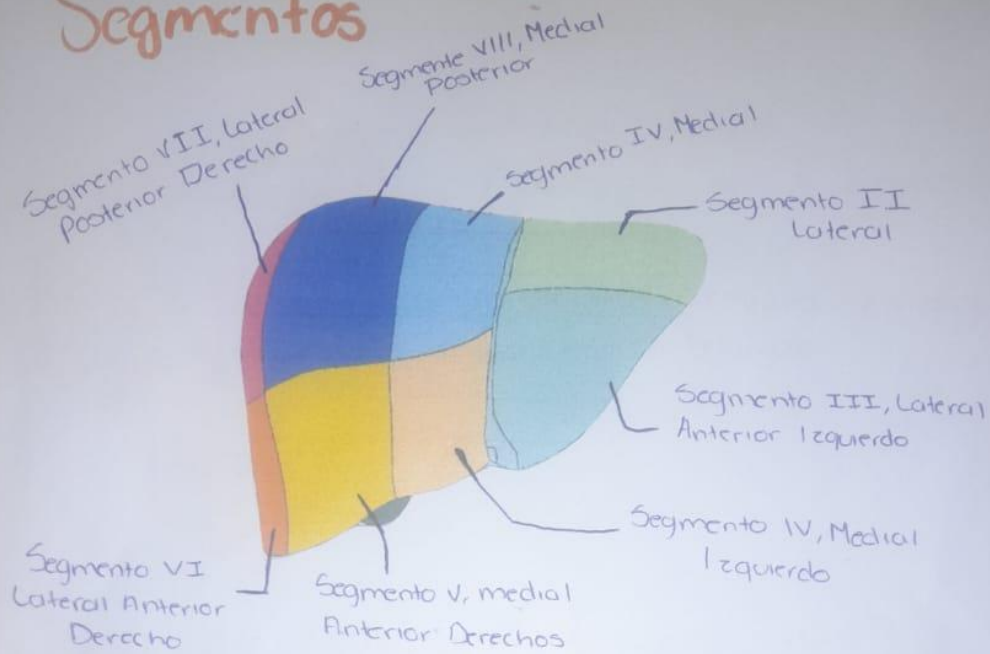 Segmentos
Segmente VIII, Medial
Posterior
Segmento VII, Lateral
Posterior Derecho
Segmento IV, Medial
Segmento II
Lateral
Segmento III, Lateral
Anterior Izquierdo
Segmento IV, Medial
Izquierdo
Segmento VI
Lateral Anterior
Derecho
Segmento V, medial
Anterior Derechos